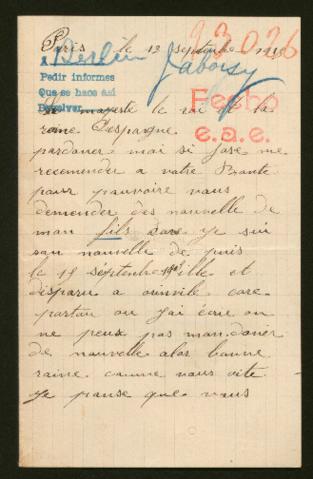 23026
Paris le 12 septembre
a Berlin
Jaboisy
Pedir informes
Que se hace así
Devolver
Fecho
e.a.e.
Sa majeste le roi de la
reine Despagne
pardoner moi si jose me
recomender a votre Bonte
pour pouvoire vous
demender des nouvelle de
mon fils dans je sui
san nouvelle de puis
le 19 séptenbre il et
disparu a
partou ou jai écri on
ne peux pas man doner
de nouvelle alor bonne
raine comme vous aite
je panse que vous